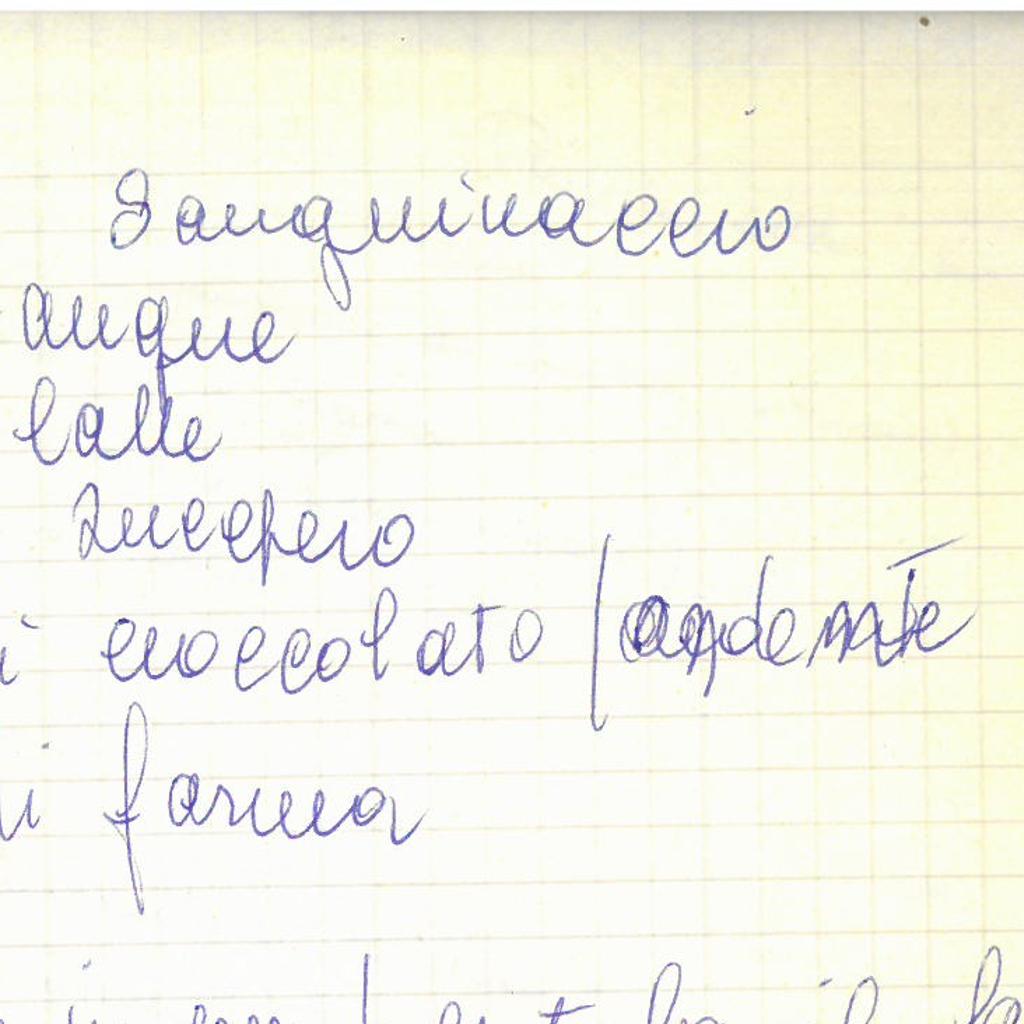 Sanguinaccio
angue
latte
zucchero
i cioccolato (fondente
i farina